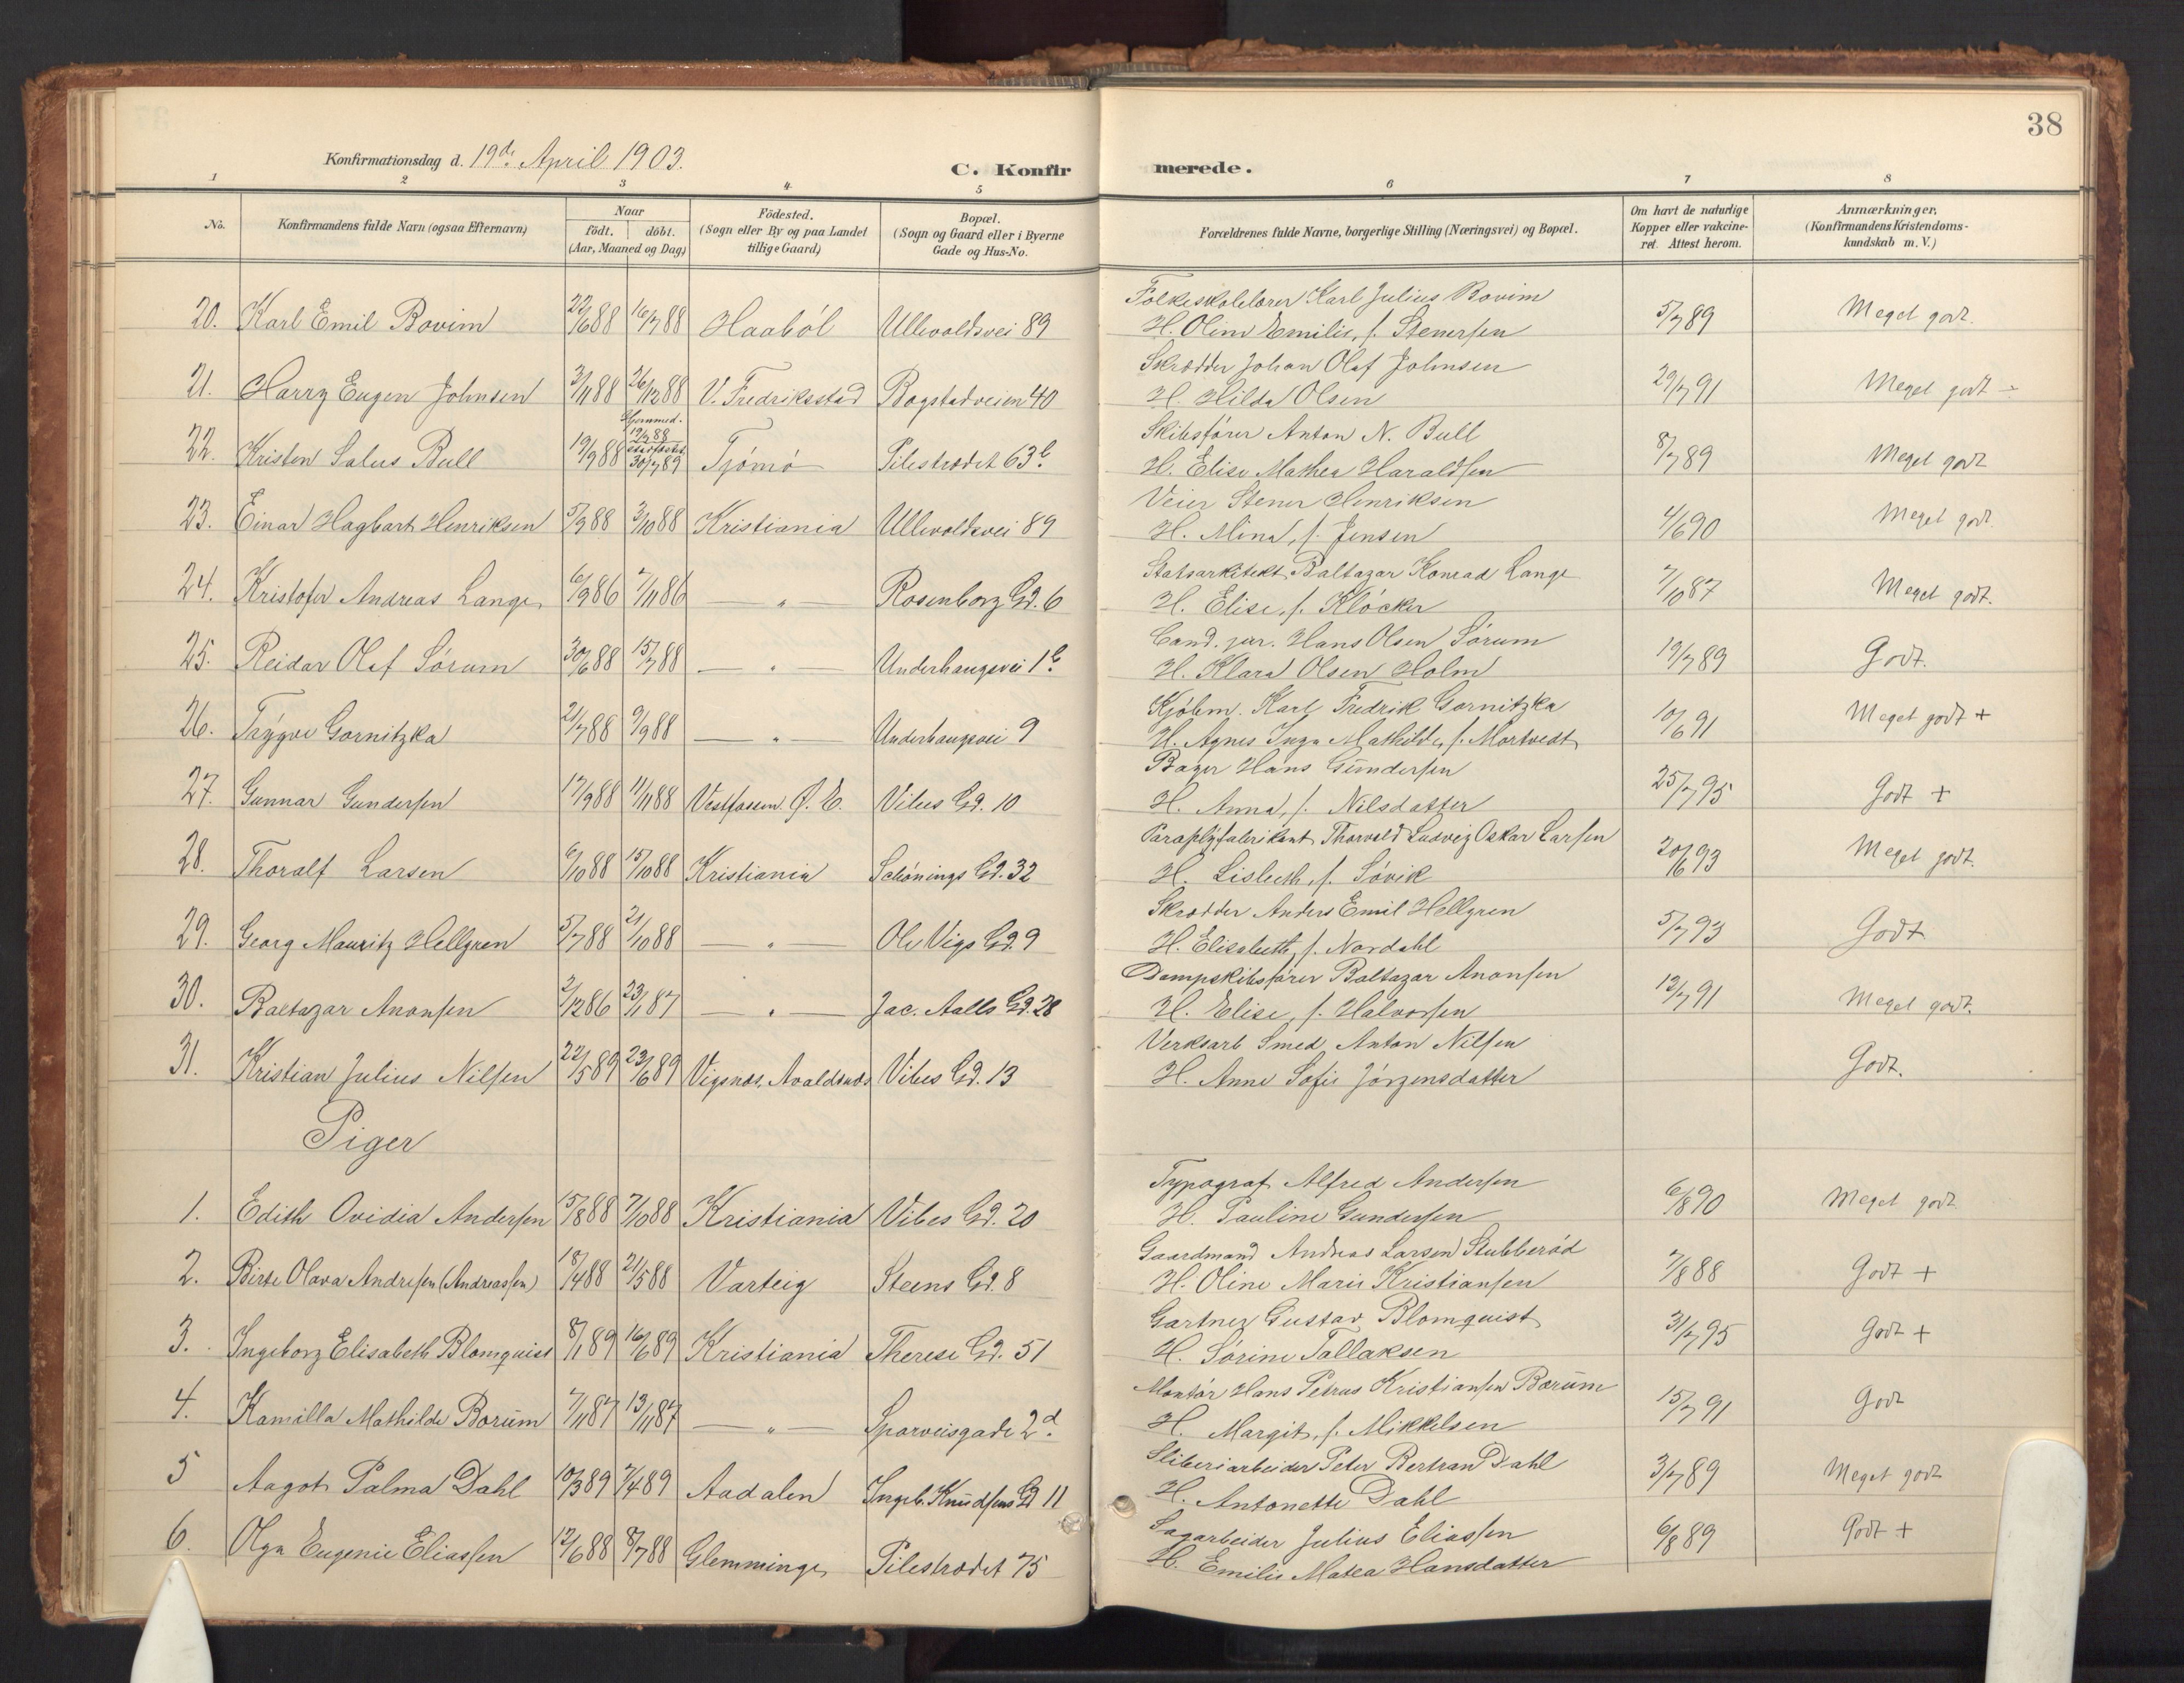 38
Konfirmationsdag d. 19de April 1903.
C. Konfirmerede.
1 2 3 4 5 6 7 8
No. Konfirmandens fulde Navn (ogsaa Efternavn) Naar født. døbt. (Aar, Maaned og Dag) Fødested. (Sogn eller By og paa Landet tillige Gaard) Bopæl. (Sogn og Gaard eller i Byerne Gade og Hus-No. Forældrenes fulde Navne, borgerlige Stilling (Næringsvei) og Bopæl. Om havt de naturlige Kopper eller vakcineret. Attest herom. Anmærkninger, (Konfirmandens Kristendomskundskab m. V.)
Folkeskolelærer Karl Julius Bovim
20. Karl Emil Bovim 22/6 88 16/7 88 Haabøl Ullevoldsvei 89 H. Oline Emilie, f. Stenersen 5/7 89 Meget godt.
Skrædder Johan Olaf Johnsen
21. Harry Eugen Johnsen 3/11 88 26/12 88 V. Fredriksstad Bogstadveien 40 H. Hilda Olsen 29/7 91 Meget godt ÷
Hjemmed. 19/9 88 stadfæstet 30/7 89
Skibsfører Anton N. Bull
22. Kristen Salus Bull 19/9 88 Tjømø Pilestrædet 63b. H. Elise Mathea Haraldsen 8/7 89 Meget godt
Veier Stener Henriksen
23. Einar Hagbart Henriksen 5/9 88 3/10 88 Kristiania Ullevoldsvei 89 H. Mina, f. Jensen 4/6 90 Meget godt.
Statsarkitekt Baltazar Konrad Lange
24. Kristofer Andreas Lange 6/9 86 7/11 86 " Rosenborg Gd. 6 H. Elise, f. Kløcker 7/10 87 Meget godt.
Cand. jur. Hans Olsen Sørum
25. Reidar Olaf Sørum 30/6 88 15/7 88 " Underhaugsvei 1b. H. Klara Olsen Holm 19/7 89 Godt.
Kjøbm. Karl Fredrik Gornitzka
26. Trygve Gornitzka 21/7 88 9/9 88 " Underhaugsvei 9 H. Agnes Inga Mathilde, f. Mortvedt 10/6 91 Meget godt +
Bager Hans Gundersen
27. Gunnar Gundersen 17/9 88 11/11 88 Vestfossen Ø. E. Vibes Gd. 10 H. Anna, f. Nilsdatter 25/7 95 Godt +
Paraplyfabrikant Thorvald Ludvig Oskar Larsen
28. Thoralf Larsen 6/10 88 15/10 88 Kristiania Schønings Gd. 32 H. Lisbeth, f. Søvik 20/6 93 Meget godt.
Skrædder Anders Emil Hellgren
29. Georg Mauritz Hellgren 5/7 88 21/10 88 " Ole Vigs Gd. 9 H. Elisabeth, f. Nordahl 5/7 93 Godt
Dampskibsfører Baltazar Anonsen
30. Baltazar Anonsen 2/12 86 23/1 87 " Jac. Aalls Gd. 28 H. Elise, f. Halvorsen 13/7 91 Meget godt.
Verksarb Smed Anton Nilsen
31. Kristian Julius Nilsen 22/5 89 23/6 89 Vigsnæs, Avaldsnæs Vibes Gd. 13 H. Anne Sofie Jørgensdatter Godt.
Piger
Typograf Alfred Andersen
1. Edith Ovidia Andersen 15/8 88 7/10 88 Kristiania Vibes Gd. 20 H. Pauline Gundersen 6/8 90 Meget godt
Gaardmand Andreas Larsen Stubberød
2. Birte Olava Andresen (Andreassen) 18/4 88 21/5 88 Varteig Steens Gd. 8 H. Oline Marie Kristiansen 7/8 88 Godt +
Gartner Gustav Blomquist
3. Ingeborg Elisabeth Blomquist 8/1 89 16/6 89 Kristiania Therese Gd. 51 H. Sørine Tallaksen 31/7 95 Godt +
Montør Hans Petrus Kristiansen Borum
4. Kamilla Mathilde Borum 7/11 87 13/11 87 " Sporveisgade 2d. H. Margit, f. Mikkelsen 15/7 91 Godt
Sliberiarbeider Peter Bertran Dahl
5 Aagot Palma Dahl 10/3 89 7/4 89 Aadalen Ingeb. Knudsens Gd 11 H. Antonette Dahl 3/7 89 Meget godt
Sagarbeider Julius Eliassen
6. Olga Eugenie Eliassen 12/6 88 8/7 88 Glemminge Pilestrædet 75 H. Emilie Matea Hansdatter 6/8 89 Godt +